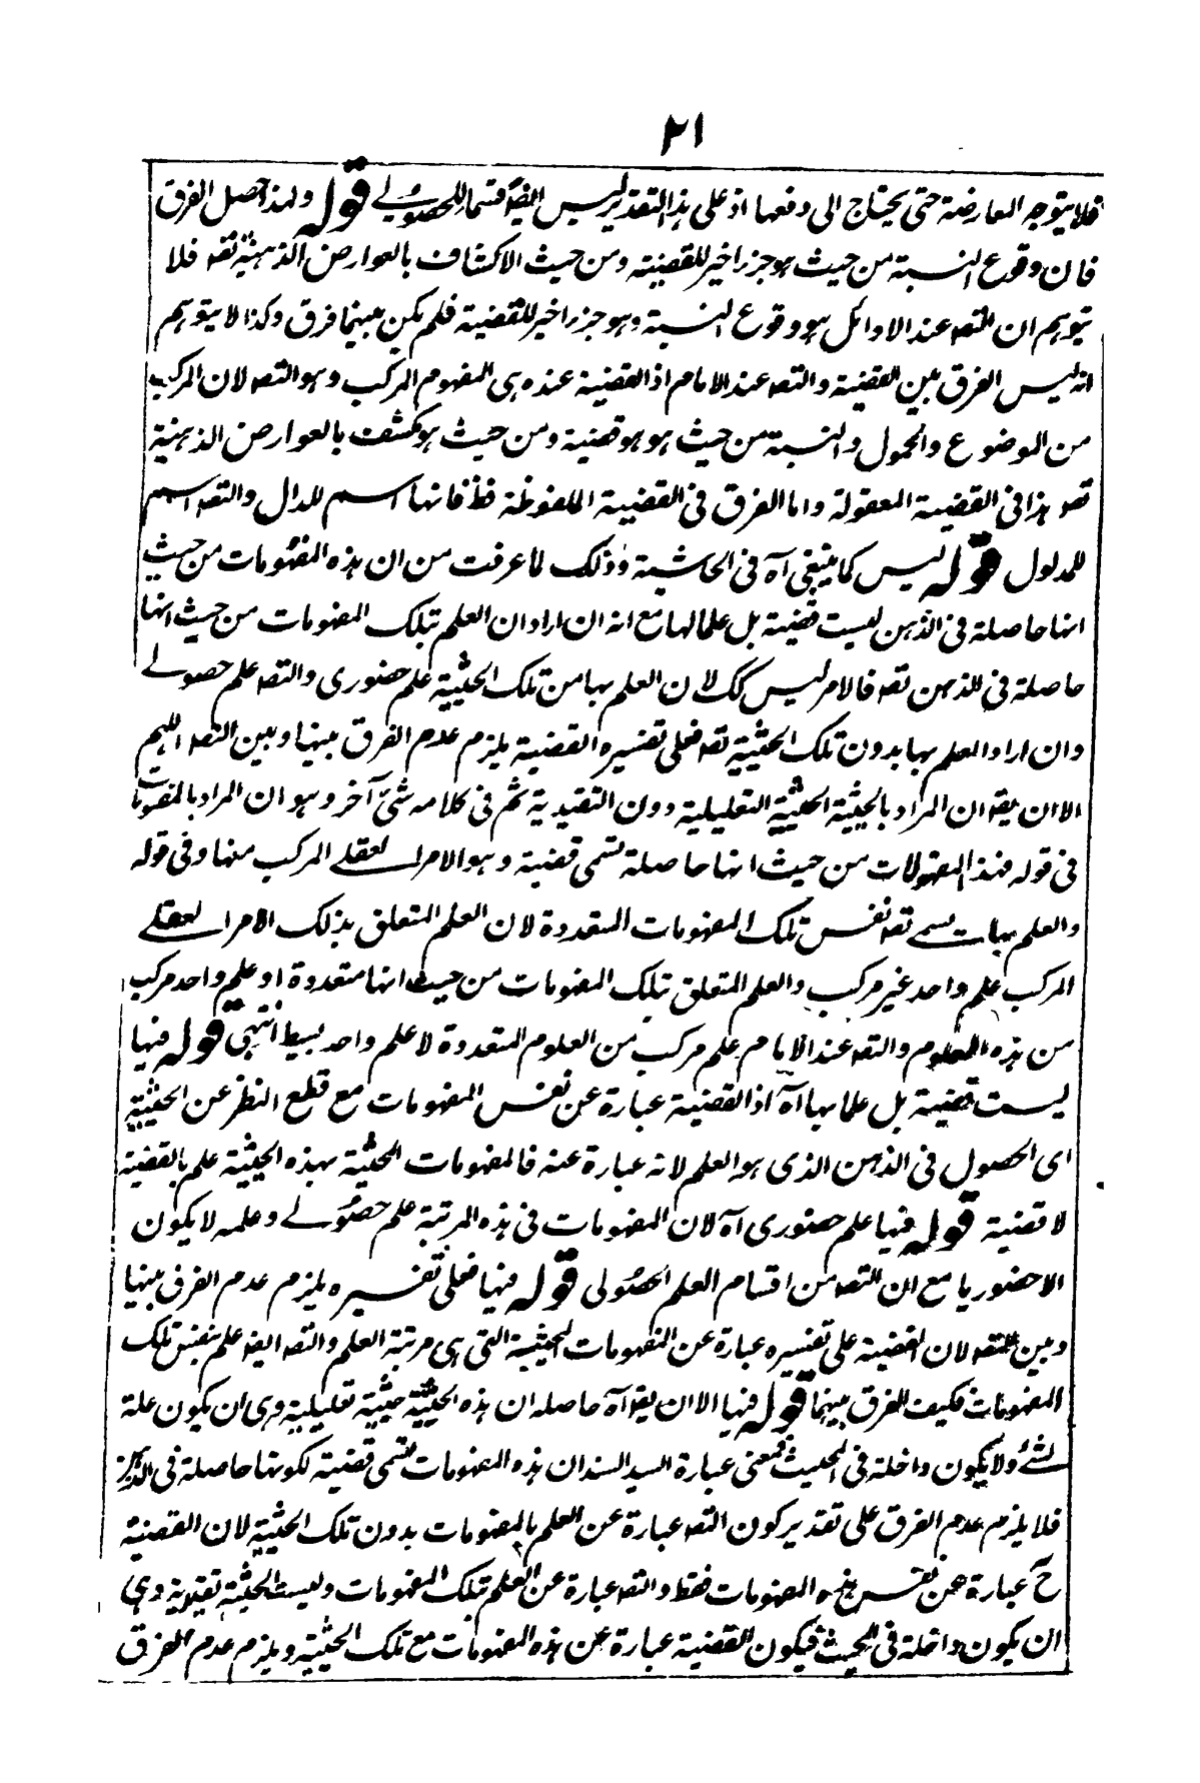 ٢١
فلا يتوجه المعارضة حتى يحتاج الى دفعها اذ على هذا التقدير ليس ايضا قسما للحصولي قوله ولهذا حصل الفرق
فان وقوع النسبة من حيث هو جزء اخير للقضية ومن حيث الاكتناف بالعوارض الذهنية تصـ فلا
يتوهم ان التصـ عند الاوائل هو وقوع النسبة وهو جزء اخير للقضية فلم يكن بينهما فرق وكذا لا يتوهم
انه ليس الفرق بين القضية والتصـ عند الامام اذ القضية عنده هى المفهوم المركب وهو التصـ لان المركب
من الموضوع والمحمول والنسبة من حيث هو هو قضية ومن حيث هو مكتنف بالعوارض الذهنية
تصـ هذا فى القضية المعقولة واما الفرق فى القضية الملفوظة فظ فانها اسم للدال والتصـ اسم
للمدلول قوله ليس كما ينبغى آه فى الحاشية وذلك لما عرفت من ان هذه المفهومات من حيث
انها حاصلة فى الذهن ليست قضية بل علما لها مع انه ان اراد ان العلم بتلك المفهومات من حيث انها
حاصلة فى الذهن تصـ فالامر ليس كك لان العلم بها من تلك الحيثية علم حضورى والتصـ علم حصولے
وان اراد العلم بها بدون تلك الحيثية تصـ فعلى تفسيره القضية يلزم عدم الفرق بينها وبين التصـ اللهم
الا ان يقـ ان المراد بالحيثية الحيثية التعليلية دون التقيدية ثم فى كلامه شئ آخر وهو ان المراد بالمفهومات
فى قوله فهذه المفهومات من حيث انها حاصلة تسمى قضية وهو الامر العقلے المركب منها وفى قوله
والعلم بها يسمے تصـ نفس تلك المفهومات المتعددة لان العلم المتعلق بذلك الامر العقلے
المركب علم واحد غير مركب والعلم المتعلق بتلك المفهومات من حيث انها متعددة او علم واحد مركب
من هذه العلوم والتصـ عند الامام علم مركب من العلوم المتعددة لا علم واحد بسيط انتهى قوله فيها
ليست قضية بل علما بها آه اذ القضية عبارة عن نفس المفهومات مع قطع النظر عن الحيثية
اى الحصول فى الذهن الذى هو العلم لانه عبارة عنه فالمفهومات المحيثة بهذه الحيثية علم بالقضية
لا قضية قوله فيها علم حضورى آه لان المفهومات فى هذه المرتبة علم حصولے وعلمه لا يكون
الا حضوريا مع ان التصـ من اقسام العلم الحصولى قوله فيها فعلى تفسيره يلزم عدم الفرق بينها
وبين التصـ لان القضية على تفسيره عبارة عن المفهومات المحيثية التى هى مرتبة العلم والتصـ ايضـ علم بنفس تلك
المفهومات فكيف الفرق بينهما قوله فيها الا ان يقـ آه حاصله ان هذه الحيثية حيثية تعليلية وهى ان يكون علة
لشئ ولا يكون داخلة فى المحيث فمعنى عبارة السيد السند ان هذه المفهومات تسمى قضية لكونها حاصلة فى الذهن
فلا يلزم عدم الفرق على تقدير كون التصـ عبارة عن العلم بالمفهومات بدون تلك الحيثية لان القضية
حٓ عبارة عن نفس هذه المفهومات فقط والتصـ عبارة عن العلم بتلك المفهومات وليست الحيثية تقيدية وهى
ان يكون داخلة فى المحيث فيكون القضية عبارة عن هذه المفهومات مع تلك الحيثية ويلزم عدم الفرق